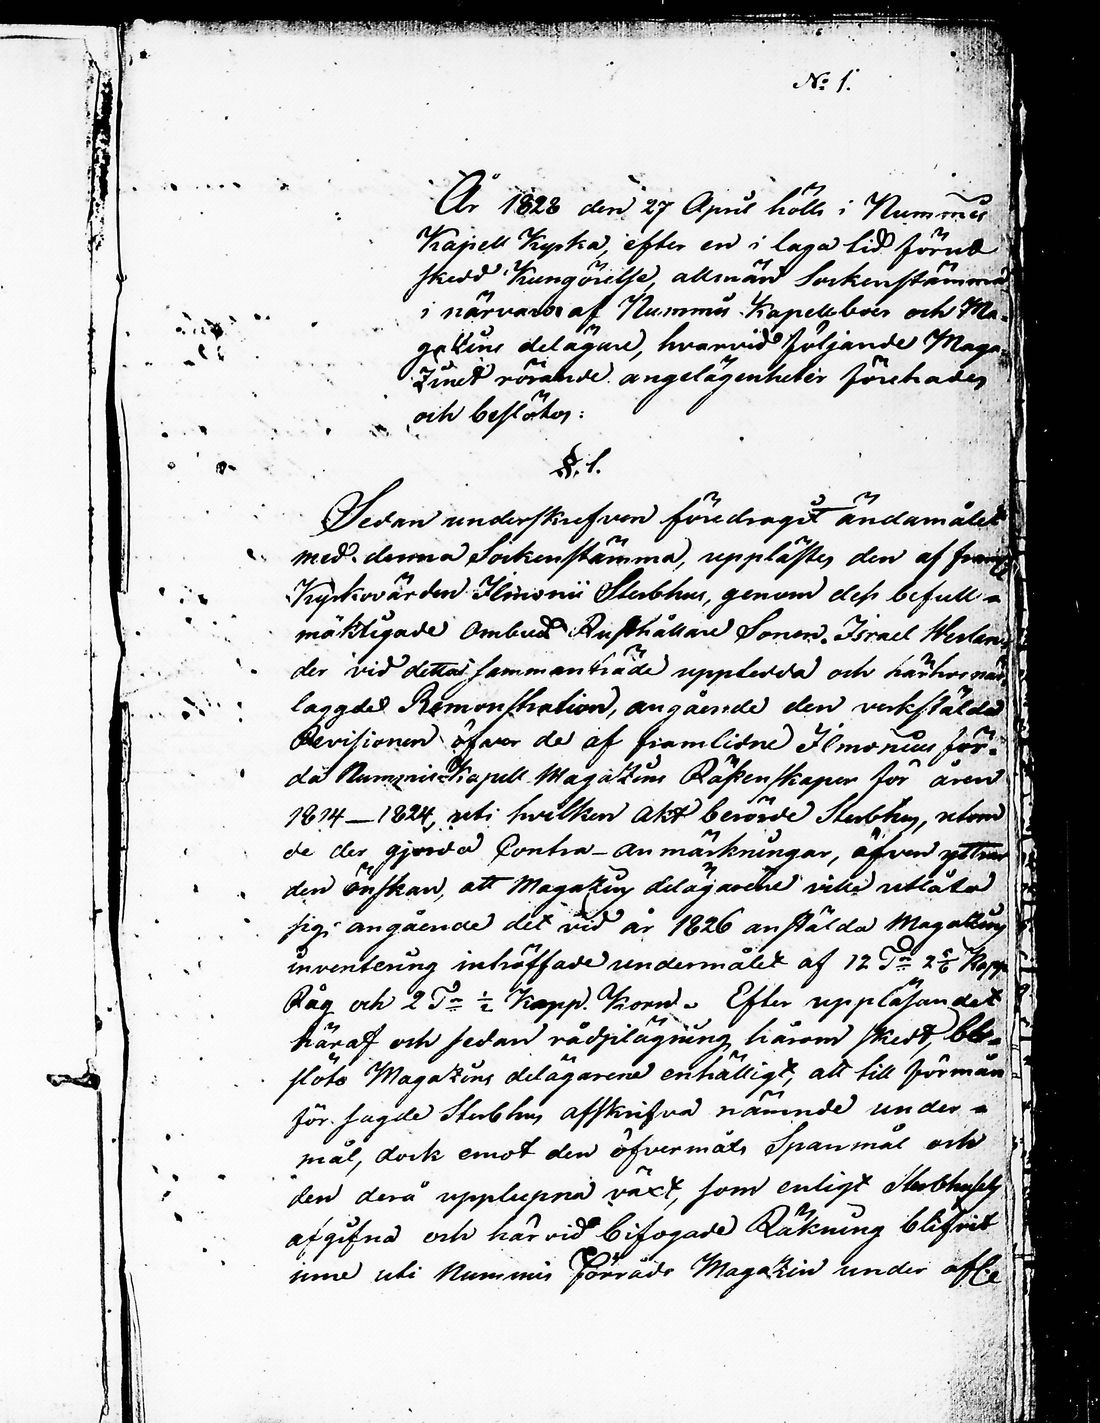 No 1.
År 1828 den 27 April hölls i Nummis
Kapell Kyrka, efter en i laga tid förut
skedd Kungörelse, allmän Sockenstämma
i närvaro af Nummis Kapellboer och Ma-
gazins delägare, hvarvid följande Maga-
zinet rörande angelägenheter förehades
och beslötos:
§. 1.
Sedan underskrefven föredragit ändamålet
med denna Sockenstämma, upplästes den af framl.
Kyrkovärden Ilmonii Sterbhus, genom dess befull-
mäktigade Ombud Rusthållare Sonen Israel Weslan-
der vid detta sammanträde uppledda och härhos när
laggde Remonstration, angående den verkstälda
Revisionen öfver de af framlidne Ilmonius för-
da Nummis Kapell Magazins Räkenskaper för åren
1814–1824, uti hvilken akt berörde Sterbhus, utom
de der gjorda Contra-anmärkningar, äfven yttrar
den önskan, att Magazins delägarene ville utlåta
sig angående det vid år 1826 anstälda Magazins
inventering inträffade undermålet af 12 Tn 2 5/6 Kapp.
Råg och 2 Tn 1/2 Kapp. Korn. Efter uppläsandet
häraf och sedan rådplägning härom skedt, be-
slöto Magazins delägarene enhälligt, att till förmån
för sagde Sterbhus afskrifva nämnde under-
mål, dock emot den öfvermåls Spanmål och
den derå upplupna växt, som enligt Sterbhusets
afgifna och härvid bifogade Räkning blifvit
inne uti Nummis Förråds Magazin under afle